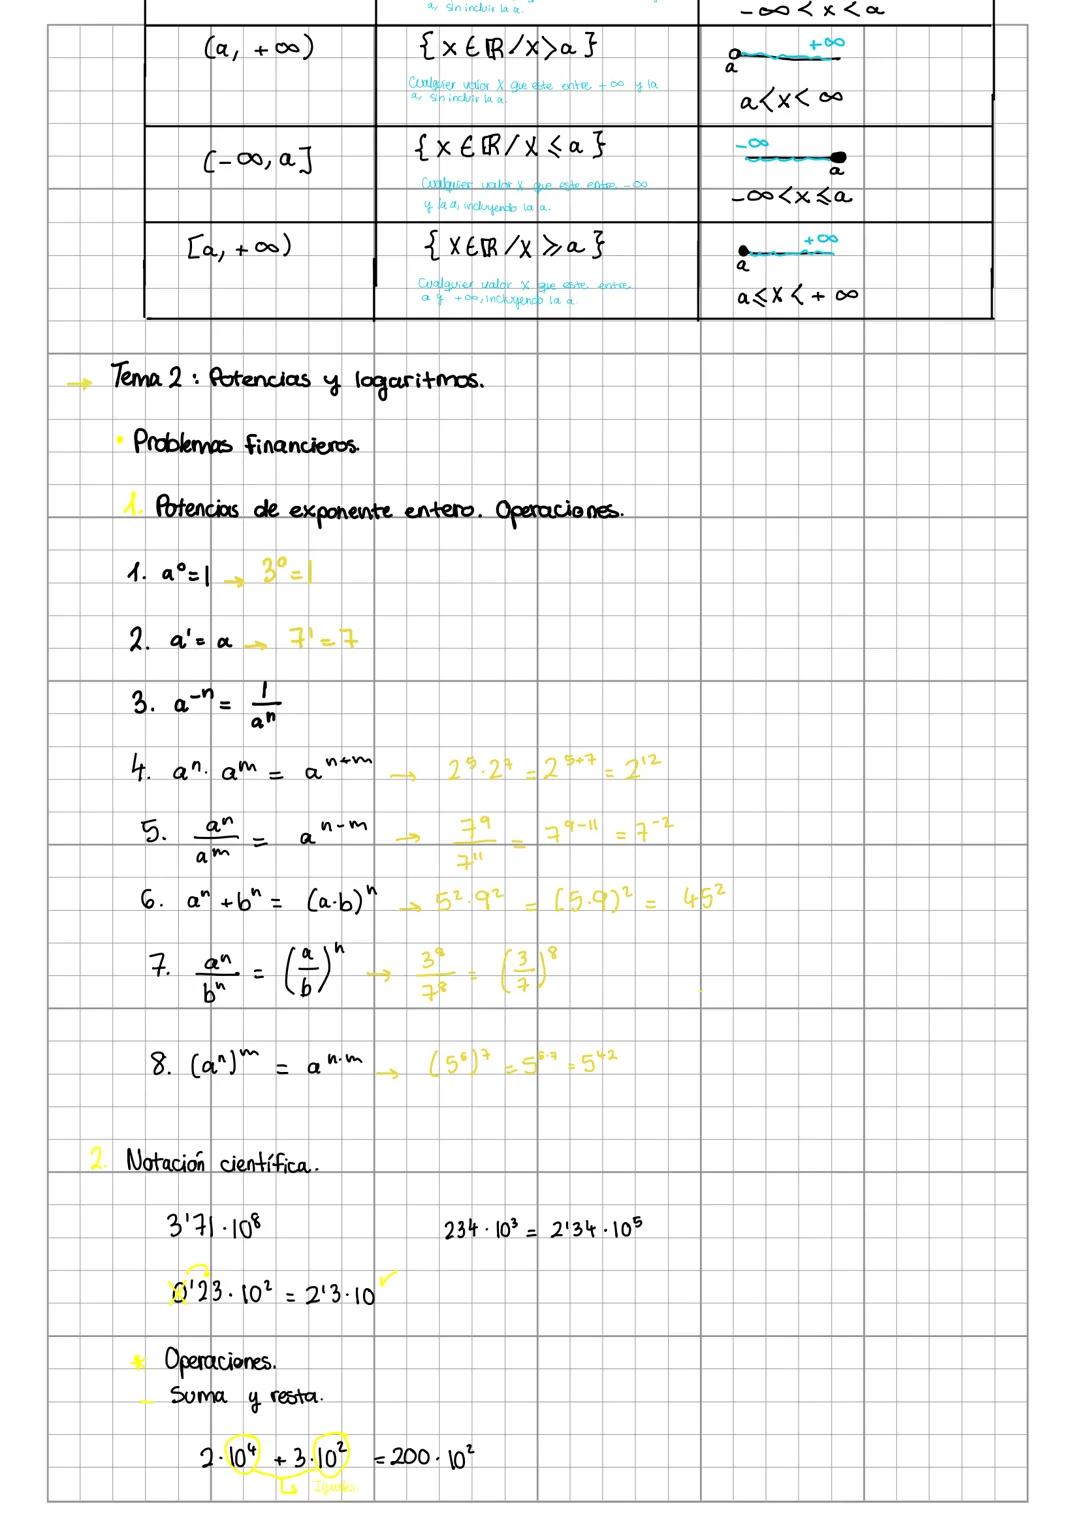 a, sin incluir la a.
-∞ < x < a
(a, +∞)
{ x ∈ ℝ / x > a }
+∞
a
Cualquier valor x que este entre +∞ y la
a, sin incluir la a.
a < x < ∞
(-∞, a]
{ x ∈ ℝ / x ⩽ a }
-∞
a
Cualquier valor x que este entre -∞
y la a, incluyendo la a.
-∞ < x ⩽ a
[a, +∞)
{ x ∈ ℝ / x ⩾ a }
+∞
a
Cualquier valor x que este entre
a y +∞, incluyendo la a.
a ⩽ x < + ∞
→ Tema 2 : Potencias y logaritmos.
• Problemas financieros.
1. Potencias de exponente entero. Operaciones.
1. a⁰ = 1 → 3⁰ = 1
2. a¹ = a → 7¹ = 7
3. a⁻ⁿ = 1/aⁿ
4. aⁿ · aᵐ = aⁿ⁺ᵐ → 2⁵ · 2⁷ = 2⁵⁺⁷ = 2¹²
5. aⁿ/aᵐ = aⁿ⁻ᵐ → 7⁹/7¹¹ = 7⁹⁻¹¹ = 7⁻²
6. aⁿ + bⁿ = (a·b)ⁿ → 5² · 9² = (5·9)² = 45²
7. aⁿ/bⁿ = (a/b)ⁿ → 3⁸/7⁸ = (3/7)⁸
8. (aⁿ)ᵐ = aⁿ·ᵐ → (5⁶)⁷ = 5⁶·⁷ = 5⁴²
2. Notación científica.
3'71 · 10⁸
234 · 10³ = 2'34 · 10⁵
0'23 · 10² = 2'3 · 10 ✓
* Operaciones.
- Suma y resta.
2 · 10⁴ + 3 · 10² = 200 · 10²
↳ Iguales.